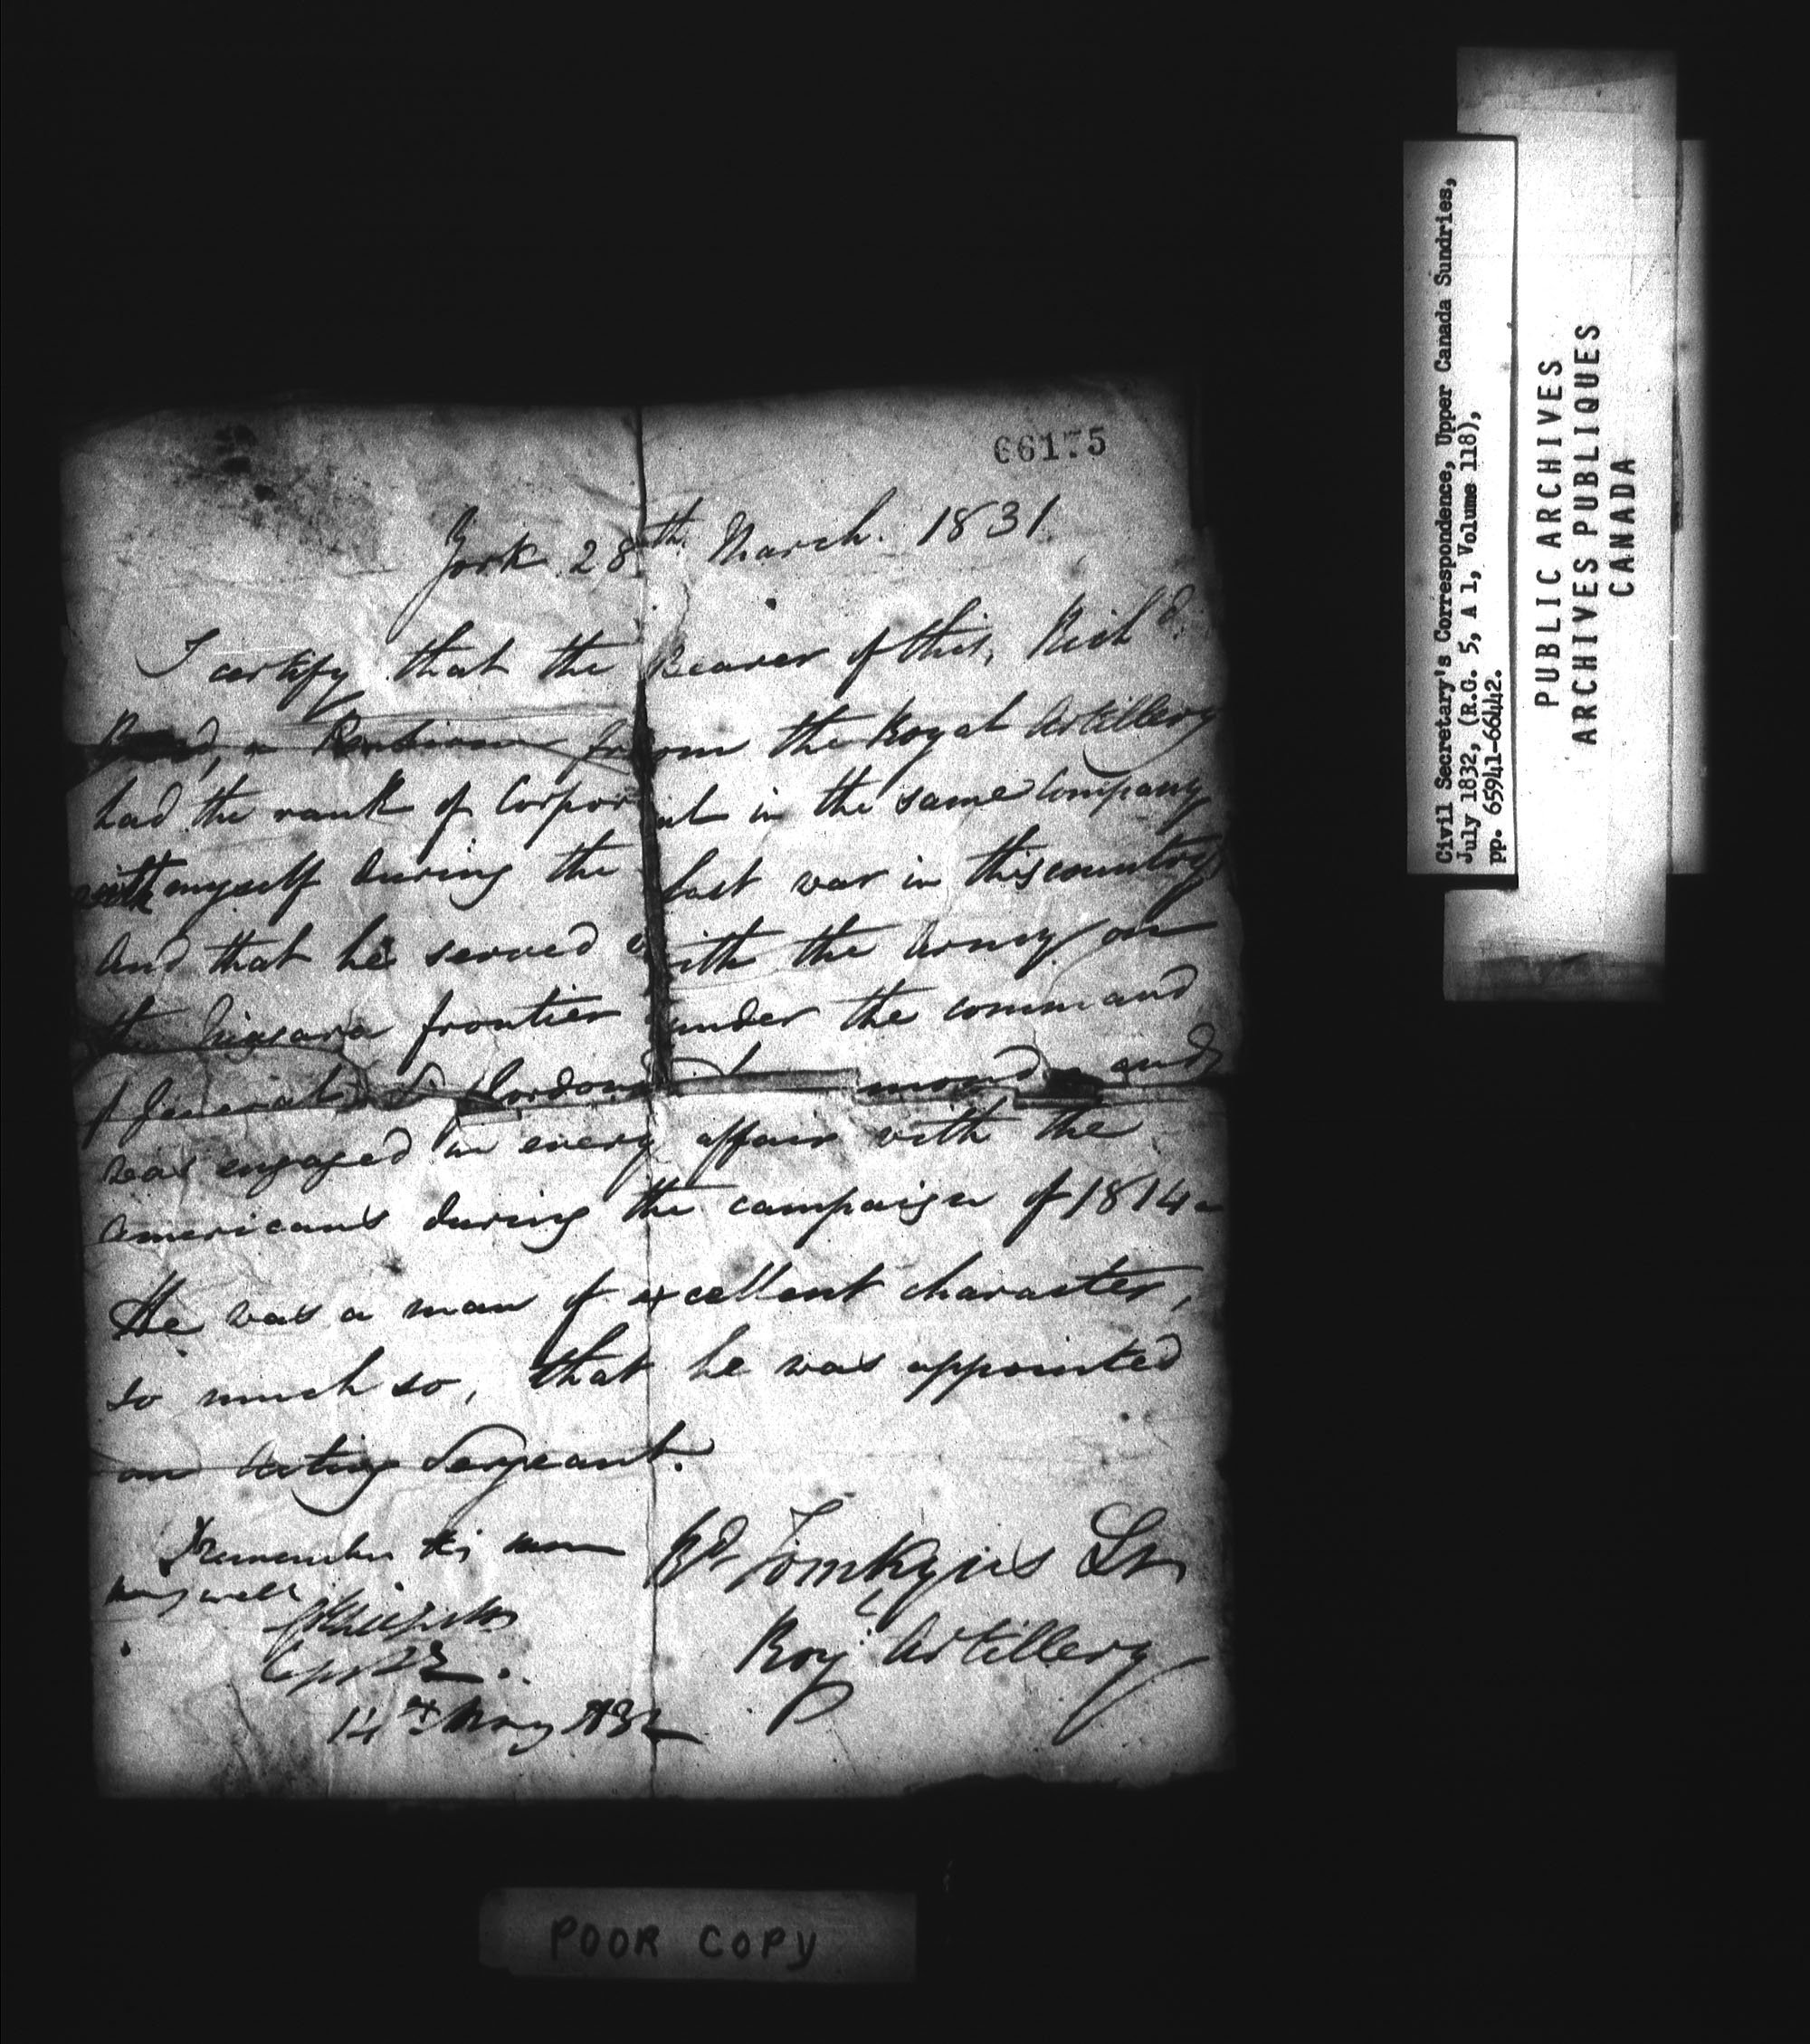 66175
York 28th March. 1831
I certify that the Bearer of this, Richd.
a Pensioner from the Royal Artillery
had the rank of Corporal in the same Company
with myself during the last war in this country
And that he served with the Army on
the Niagara frontier under the command
of General Gordon mond and
was engaged in every affair with the
Americans during the campaign of 1814
He was a man of excellent character,
so much so, that he was appointed
an Acting Sergeant.
I remember this man
very well
14th May 1832
Tomkyns Lt
Royl Artillery
POOR COPY
Civil Secretary's Correspondence, Upper Canada Sundries,
July 1832, (R.G. 5, A 1, Volume 118),
pp. 65941-66442.
PUBLIC ARCHIVES
ARCHIVES PUBLIQUES
CANADA